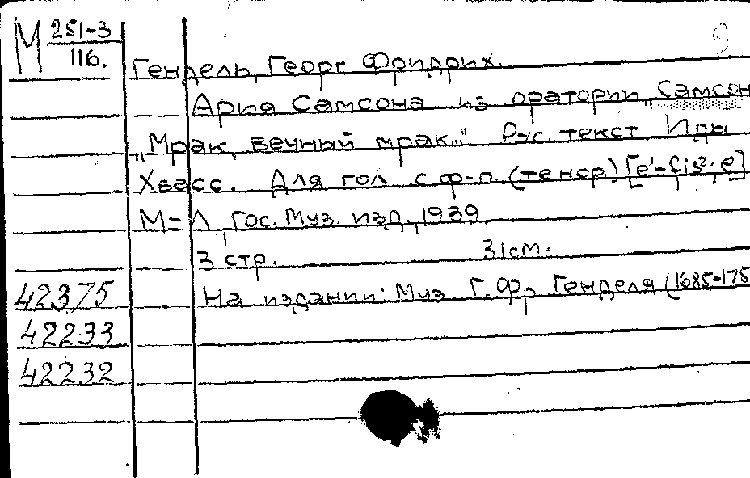 М 251-3
116.
Гендель, Георг Фридрих.
Ария Самсона из оратории „Самсон
„Мрак, вечный мрак..." Рус. текст Иды
Хвасс. Для гол. с ф-п. (тенор) [e'-fis²; e]
М=Л, Гос. Муз. изд., 1939.
3 стр. 31см.
42375 На издании: Муз. Г. Ф. Генделя (1685-175
42233
42232